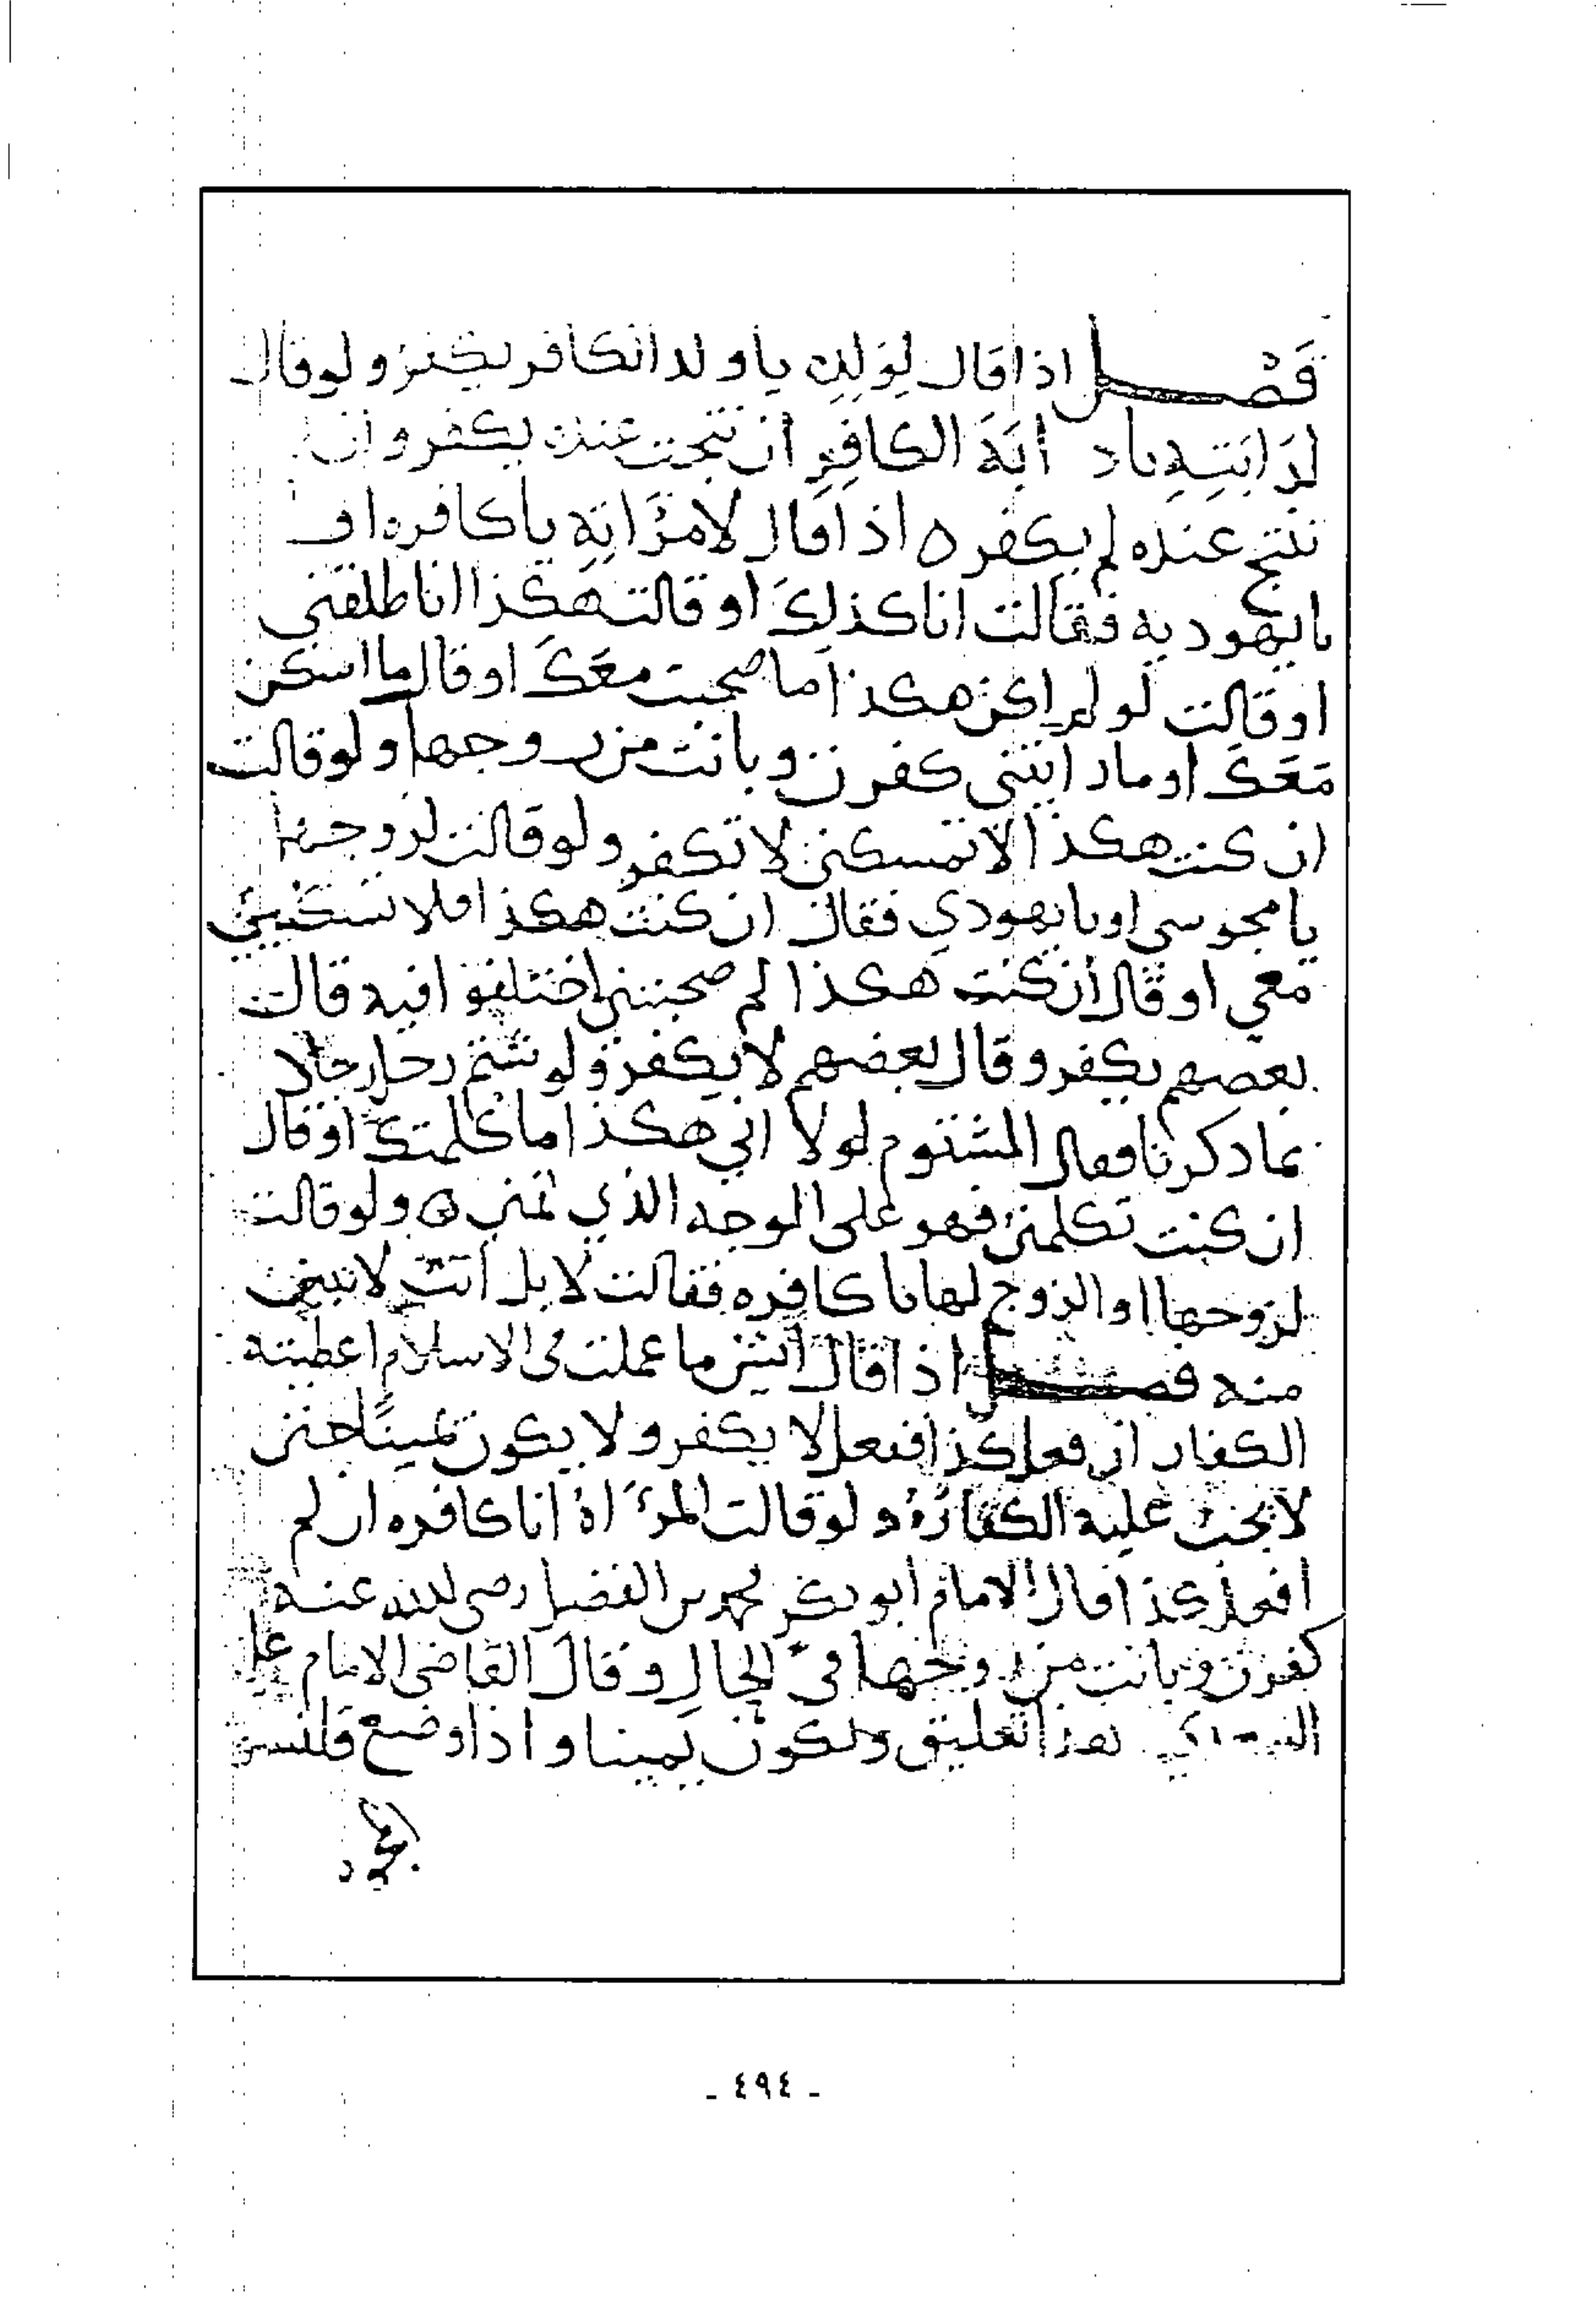 فَصْل اذا قال لولده يا ولد الكافر يكفر ولو قال
لدابته يا دابة الكافر ان نتجت عنده يكفر وان لم
تنتج عنده لم يكفر ه اذا قال لامرَاته يا كافره او
يا يهوديه فقالت انا كذلك او قالت هكذا انا طلقني
او قالت لو لم اكن هكذا ما صحبت معك او قال ما اسكن
معك او ما دابتني كفرت وبانت من زوجها ولو قالت
ان كنت هكذا لا تمسكني لا تكفر ولو قالت لزوجها
يا مجوسي او يا يهودي فقال ان كنت هكذا فلا تسكني
معي او قال ان كنت هكذا لم صحبتني اختلفوا فيه قال
بعضهم يكفر وقال بعضهم لا يكفر ولو شتم رجل رجلا
بما ذكرنا فقال المشتوم لولا اني هكذا ما كلمتك او قال
ان كنت تكلمني فهو على الوجه الذي ولو قالت
لزوجها او الزوج لها يا كافره فقالت لا بل انت لا تبين
منه فصل اذا قال ايش ما عملت في الاسلام اعطيته
الكفار ان فعل كذا ففعل لا يكفر ولا يكون يمينًا حتى
لا يجب عليه الكفارة ولو قالت المرَاة انا كافره ان لم
افعل كذا قال الامام ابو بكر محمد بن الفضل رضى الله عنه
كفرت وبانت من زوجها في الحال وقال القاضي الامام علي
هذا تعليق ويكون يمينا واذا وضع قلنسوة
- ٤٩٤ -